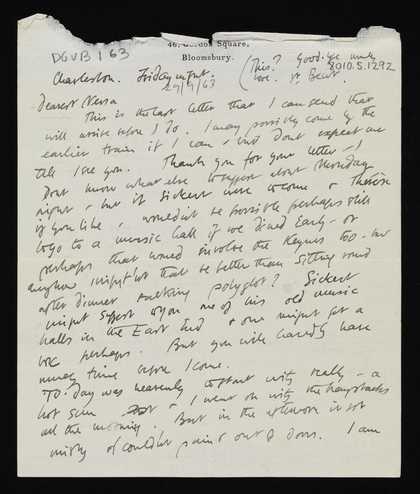 46, Gordon Square,
Bloomsbury.
DGVB 1 63
8010.5.1292
Charleston. Friday night.
29/9/63
(This? Good-bye
love. yr Bear.
Dearest Nessa
This is the last letter that I can send that
will arrive before I do. I may possibly come by the
earlier train if I can & but dont expect me
till I see you. Thank you for your letter – I
Dont know what else to suggest about Monday
night & but if Sickert were to come & Thérèse
if you like, would it be possible perhaps still
to go to a music hall if we dined early – or
perhaps that would involve the Keynes too – but
anyhow might not that be better than sitting round
after dinner talking polyglot? Sickert
might suggest to you one of his old music
halls in the East End & one might get a
box perhaps. But you will hardly have
much time before I come.
To-Day was heavenly to start with really – a
hot sun & I went on with the haystacks
all the morning. But in the afternoon it got
misty & I couldn't paint out of doors. I am